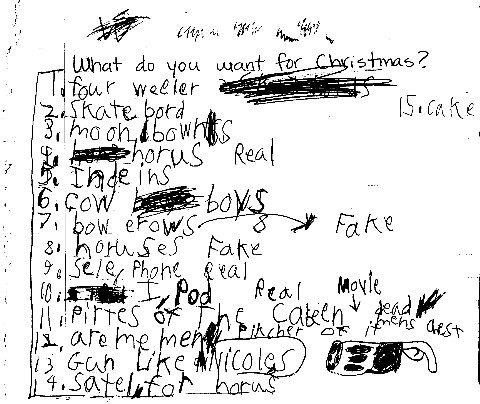 What do you want for Christmas?
1. four weeler
2. Skate bord
15. cake
3. moon bownts
4. horus Real
5. Indeins
6. cow boys
7. bow erows Fake
8. horuses Fake
9. Sele, Phone real
10. I, Pod Real
Movie
11. Pirtes of The
dead
mens chest
12. are me men
13. Gun Like Nicoles
14. Satel, for horus